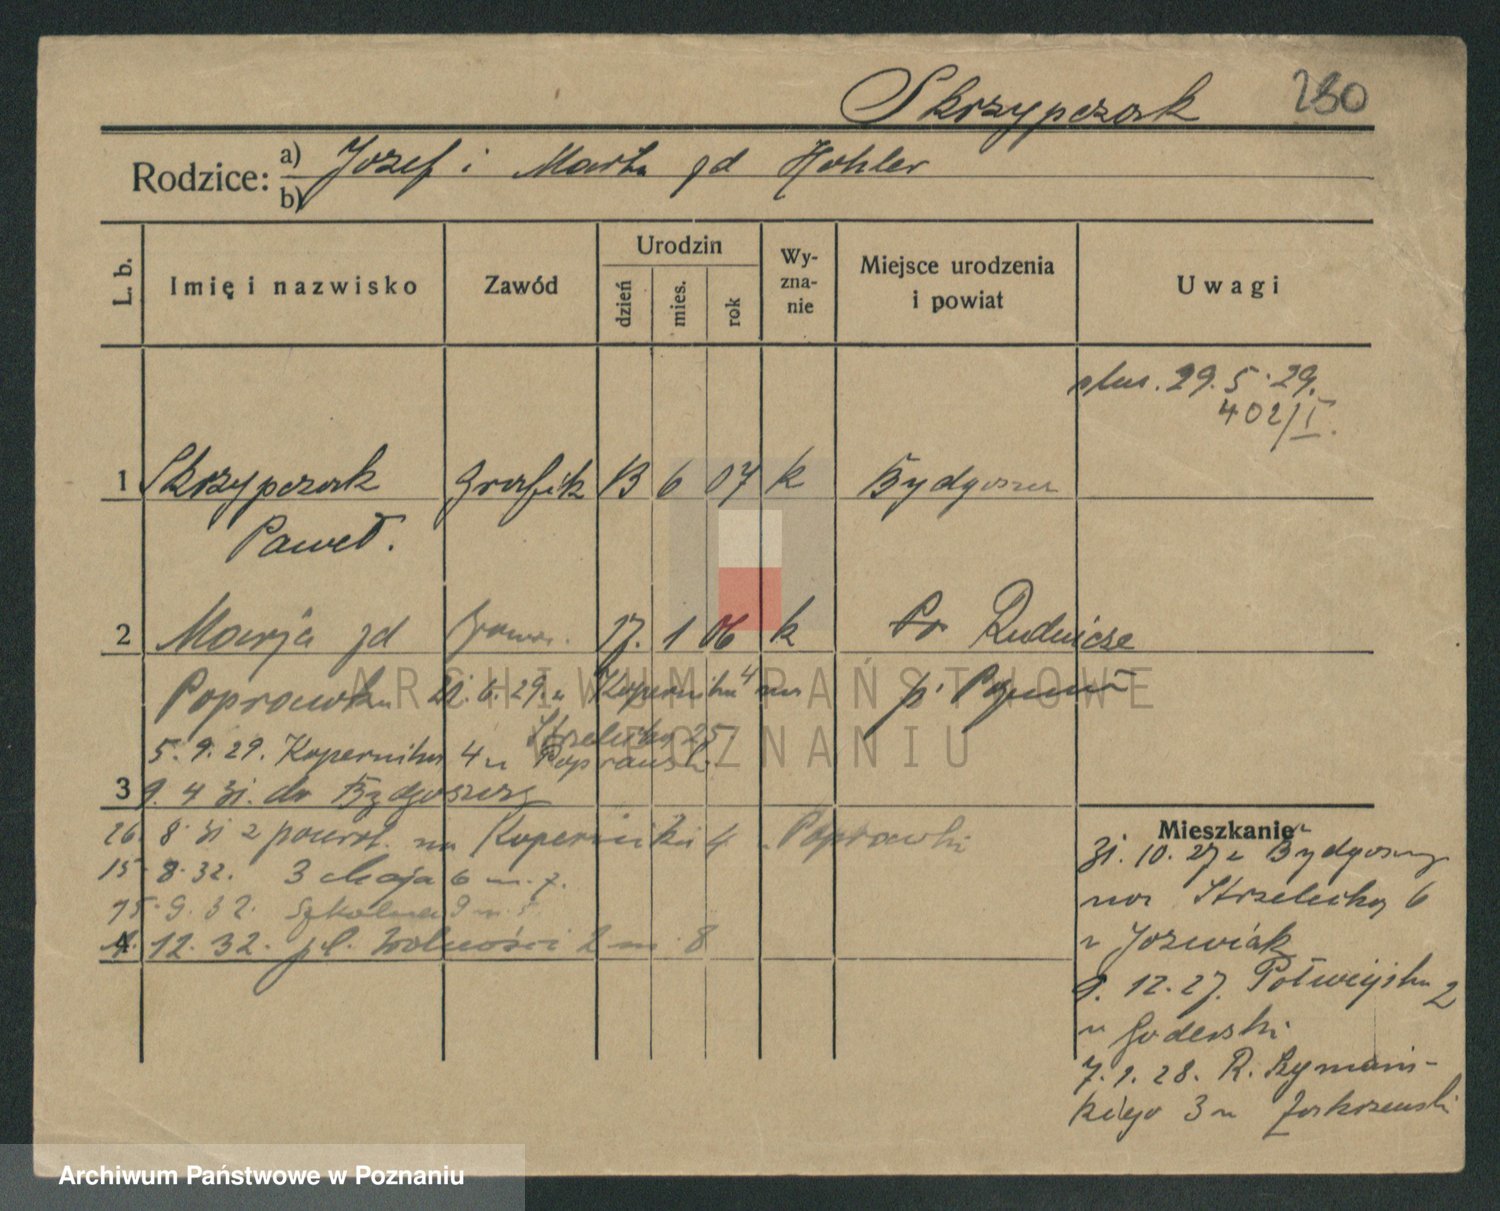 Skrzypczak 230
Rodzice: a) Jozef i Marta zd Hohler
b)
L. b. Imię i nazwisko Zawód Urodzin dzień mies. rok Wy-zna-nie Miejsce urodzenia i powiat Uwagi
29.5.29.
402/I.
1 Skrzypczak grafik 13 6 07 k Bydgoszcz
Paweł.
2 Marja zd 17. 1 06 k Rudnicze
Poprawka 6.29. u Kopernika 4 p. Poznań
Strzelecka 25
5.9.29. Kopernika 4 u Poprawski
3 9. 4 31. do Bydgoszczy
26. 8. 31 z powrot. na Kopernika 4 u Poprawski
15. 8. 32. 3 Maja 6 m. 7.
15. 9. 32. Szkolna 9 m. 5
4 12. 32. pl. Wolności 2 m. 8
Mieszkanie
31. 10. 27 z Bydgoszczy
na Strzelecka 6
u Jozwiak
9. 12. 27. Półwiejska 2
u Goderski
7. 9. 28. R. Szymańs-
kiego 3 u Zakrzewski
ARCHIWUM PAŃSTWOWE
W POZNANIU
Archiwum Państwowe w Poznaniu